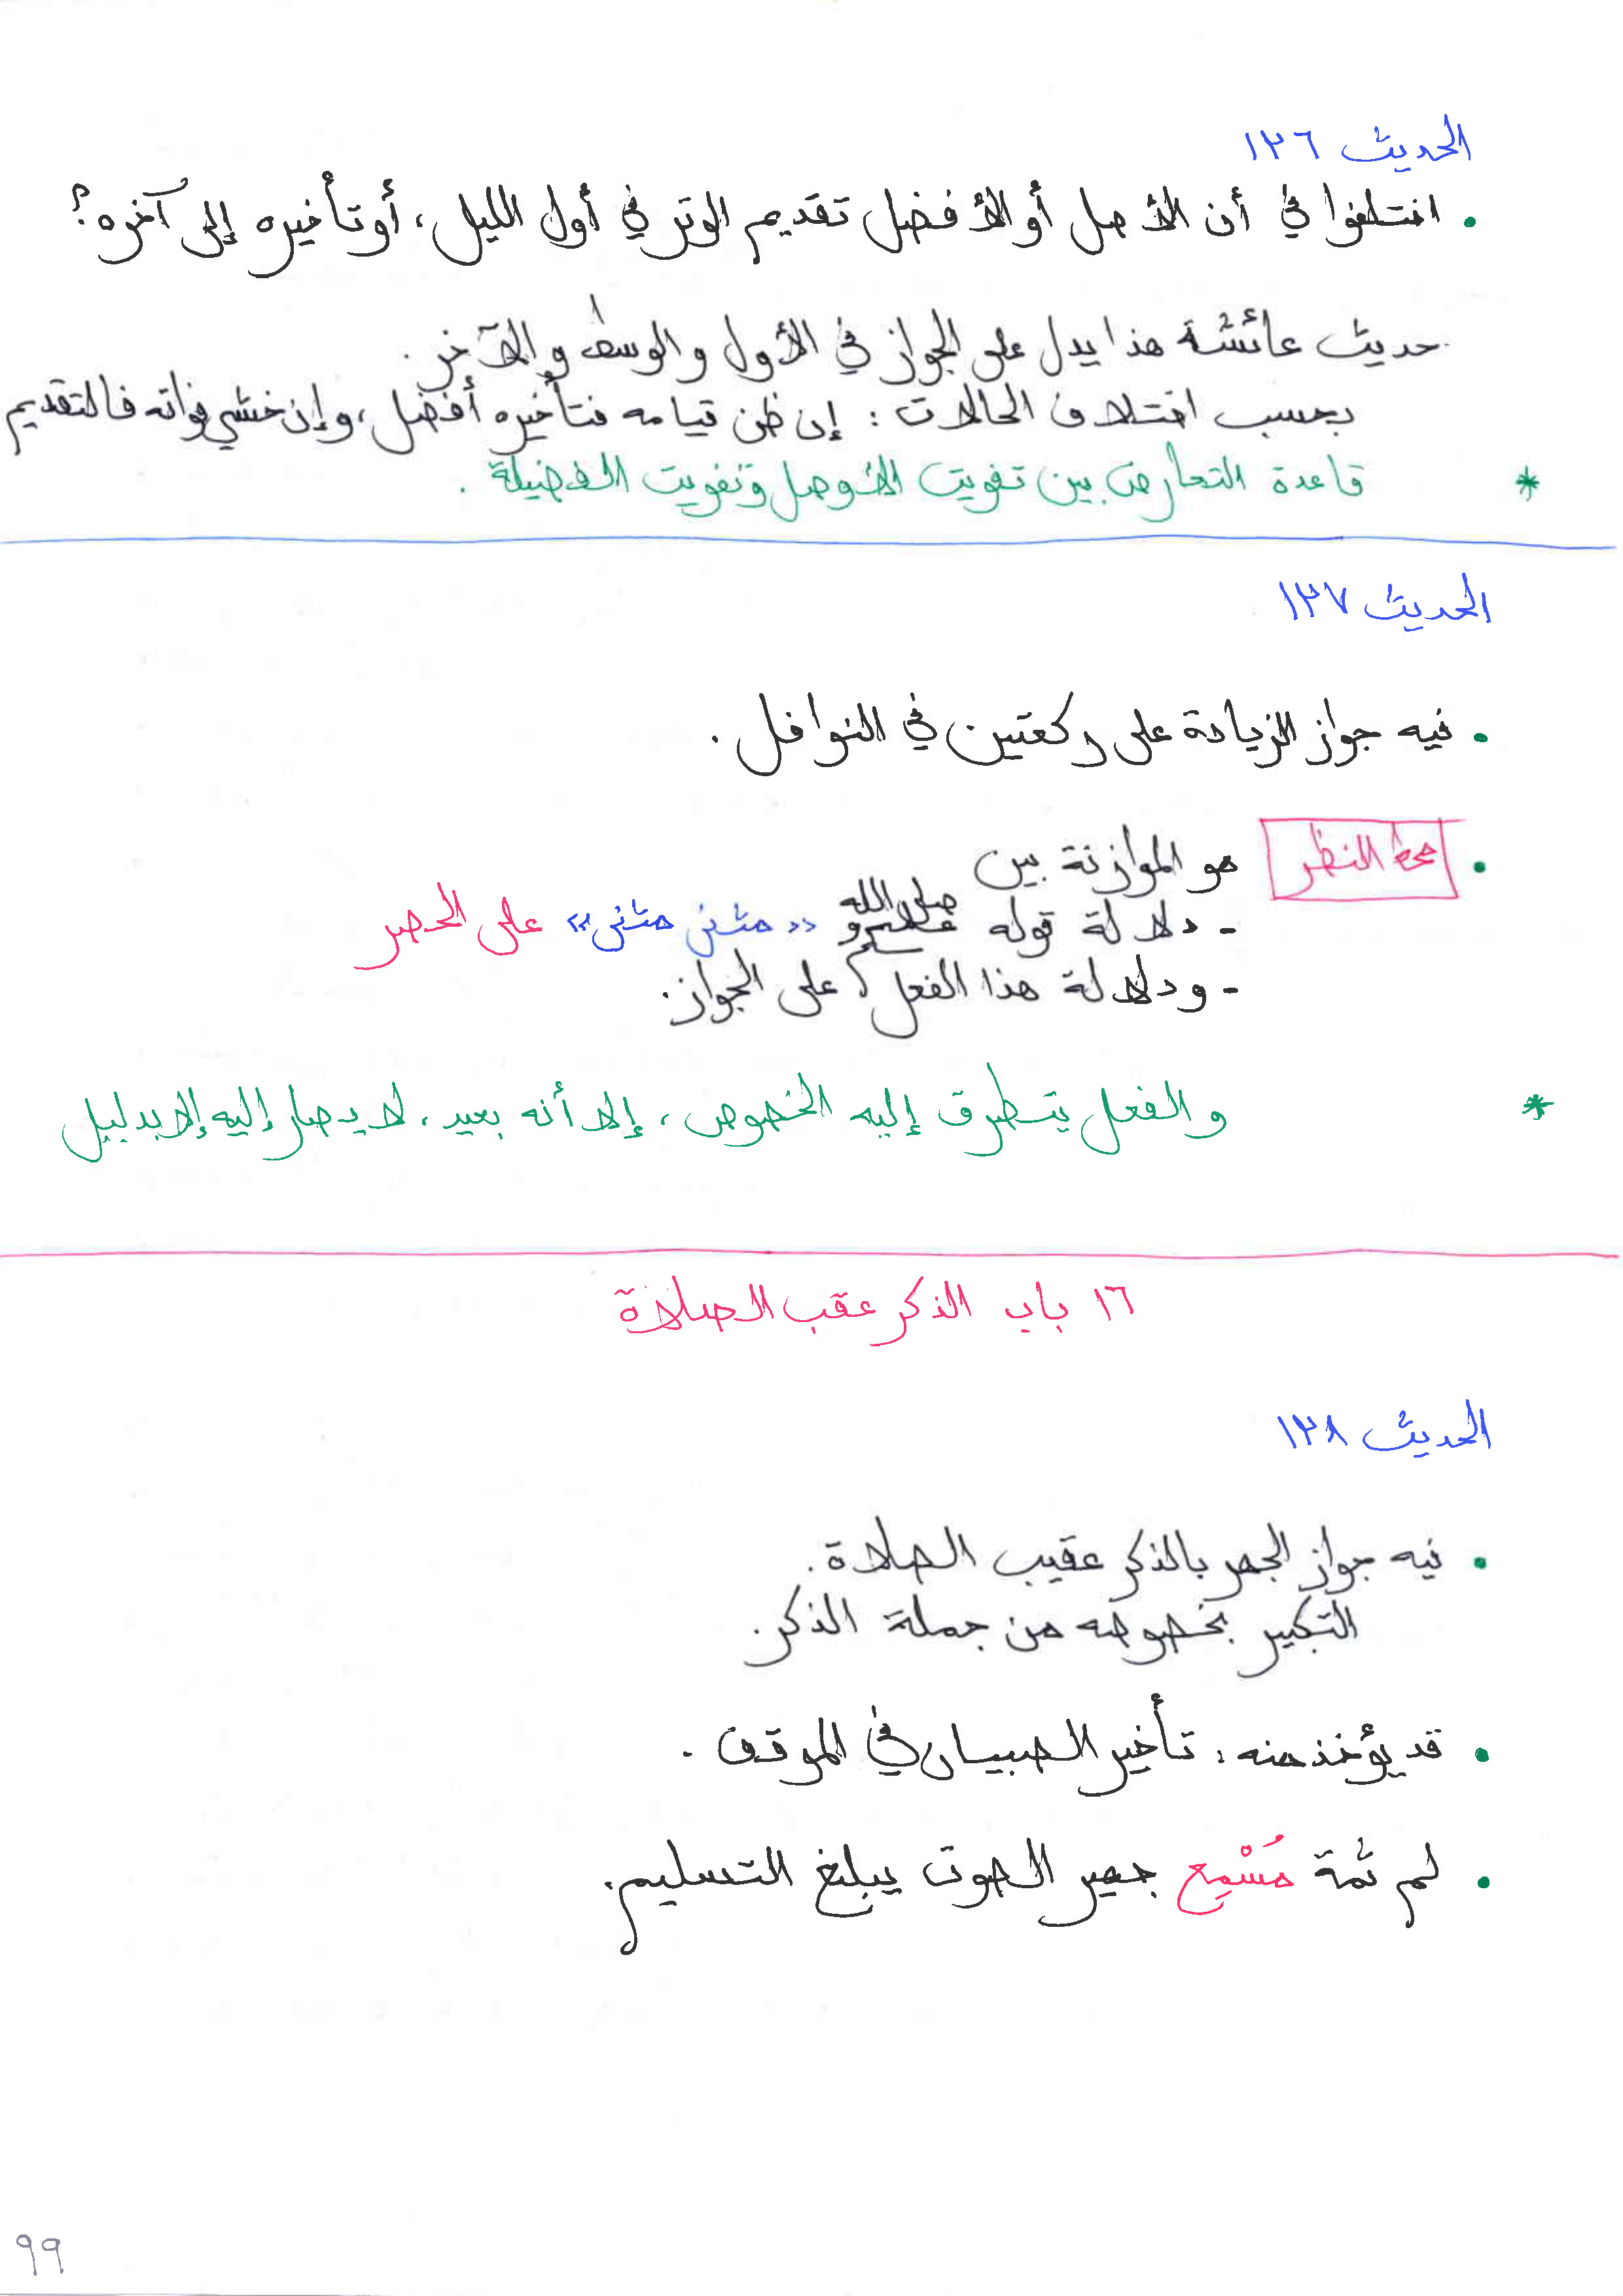 الحديث ١٣٦
• اختلفوا في أن الأصل أو الأفضل تقديم الوتر في أول الليل، أو تأخيره إلى آخره؟
حديث عائشة هذا يدل على الجواز في الأول والوسط والآخر.
بحسب اختلاف الحالات: إن ظن قيامه فتأخيره أفضل، وإن خشي فواته فالتقديم
* قاعدة التعارض بين تفويت الأصل وتفويت الفضيلة.
الحديث ١٣٧
• فيه جواز الزيادة على ركعتين في النوافل.
• محط النظر هو الموازنة بين
- دلالة قوله صلى الله عليه وسلم «مثنى مثنى» على الحصر
- ودلالة هذا الفعل على الجواز.
* والفعل يتطرق إليه الخصوص، إلا أنه بعيد، لا يصار إليه إلا بدليل
١٦ باب الذكر عقب الصلاة
الحديث ١٣٨
• فيه جواز الجهر بالذكر عقيب الصلاة.
التكبير بخصوصه من جملة الذكر.
• قد يؤخذ منه: تأخير الصبيان في الموقف.
• لم ثمة مُسْمِع جهير الصوت يبلغ التسليم.
٩٩